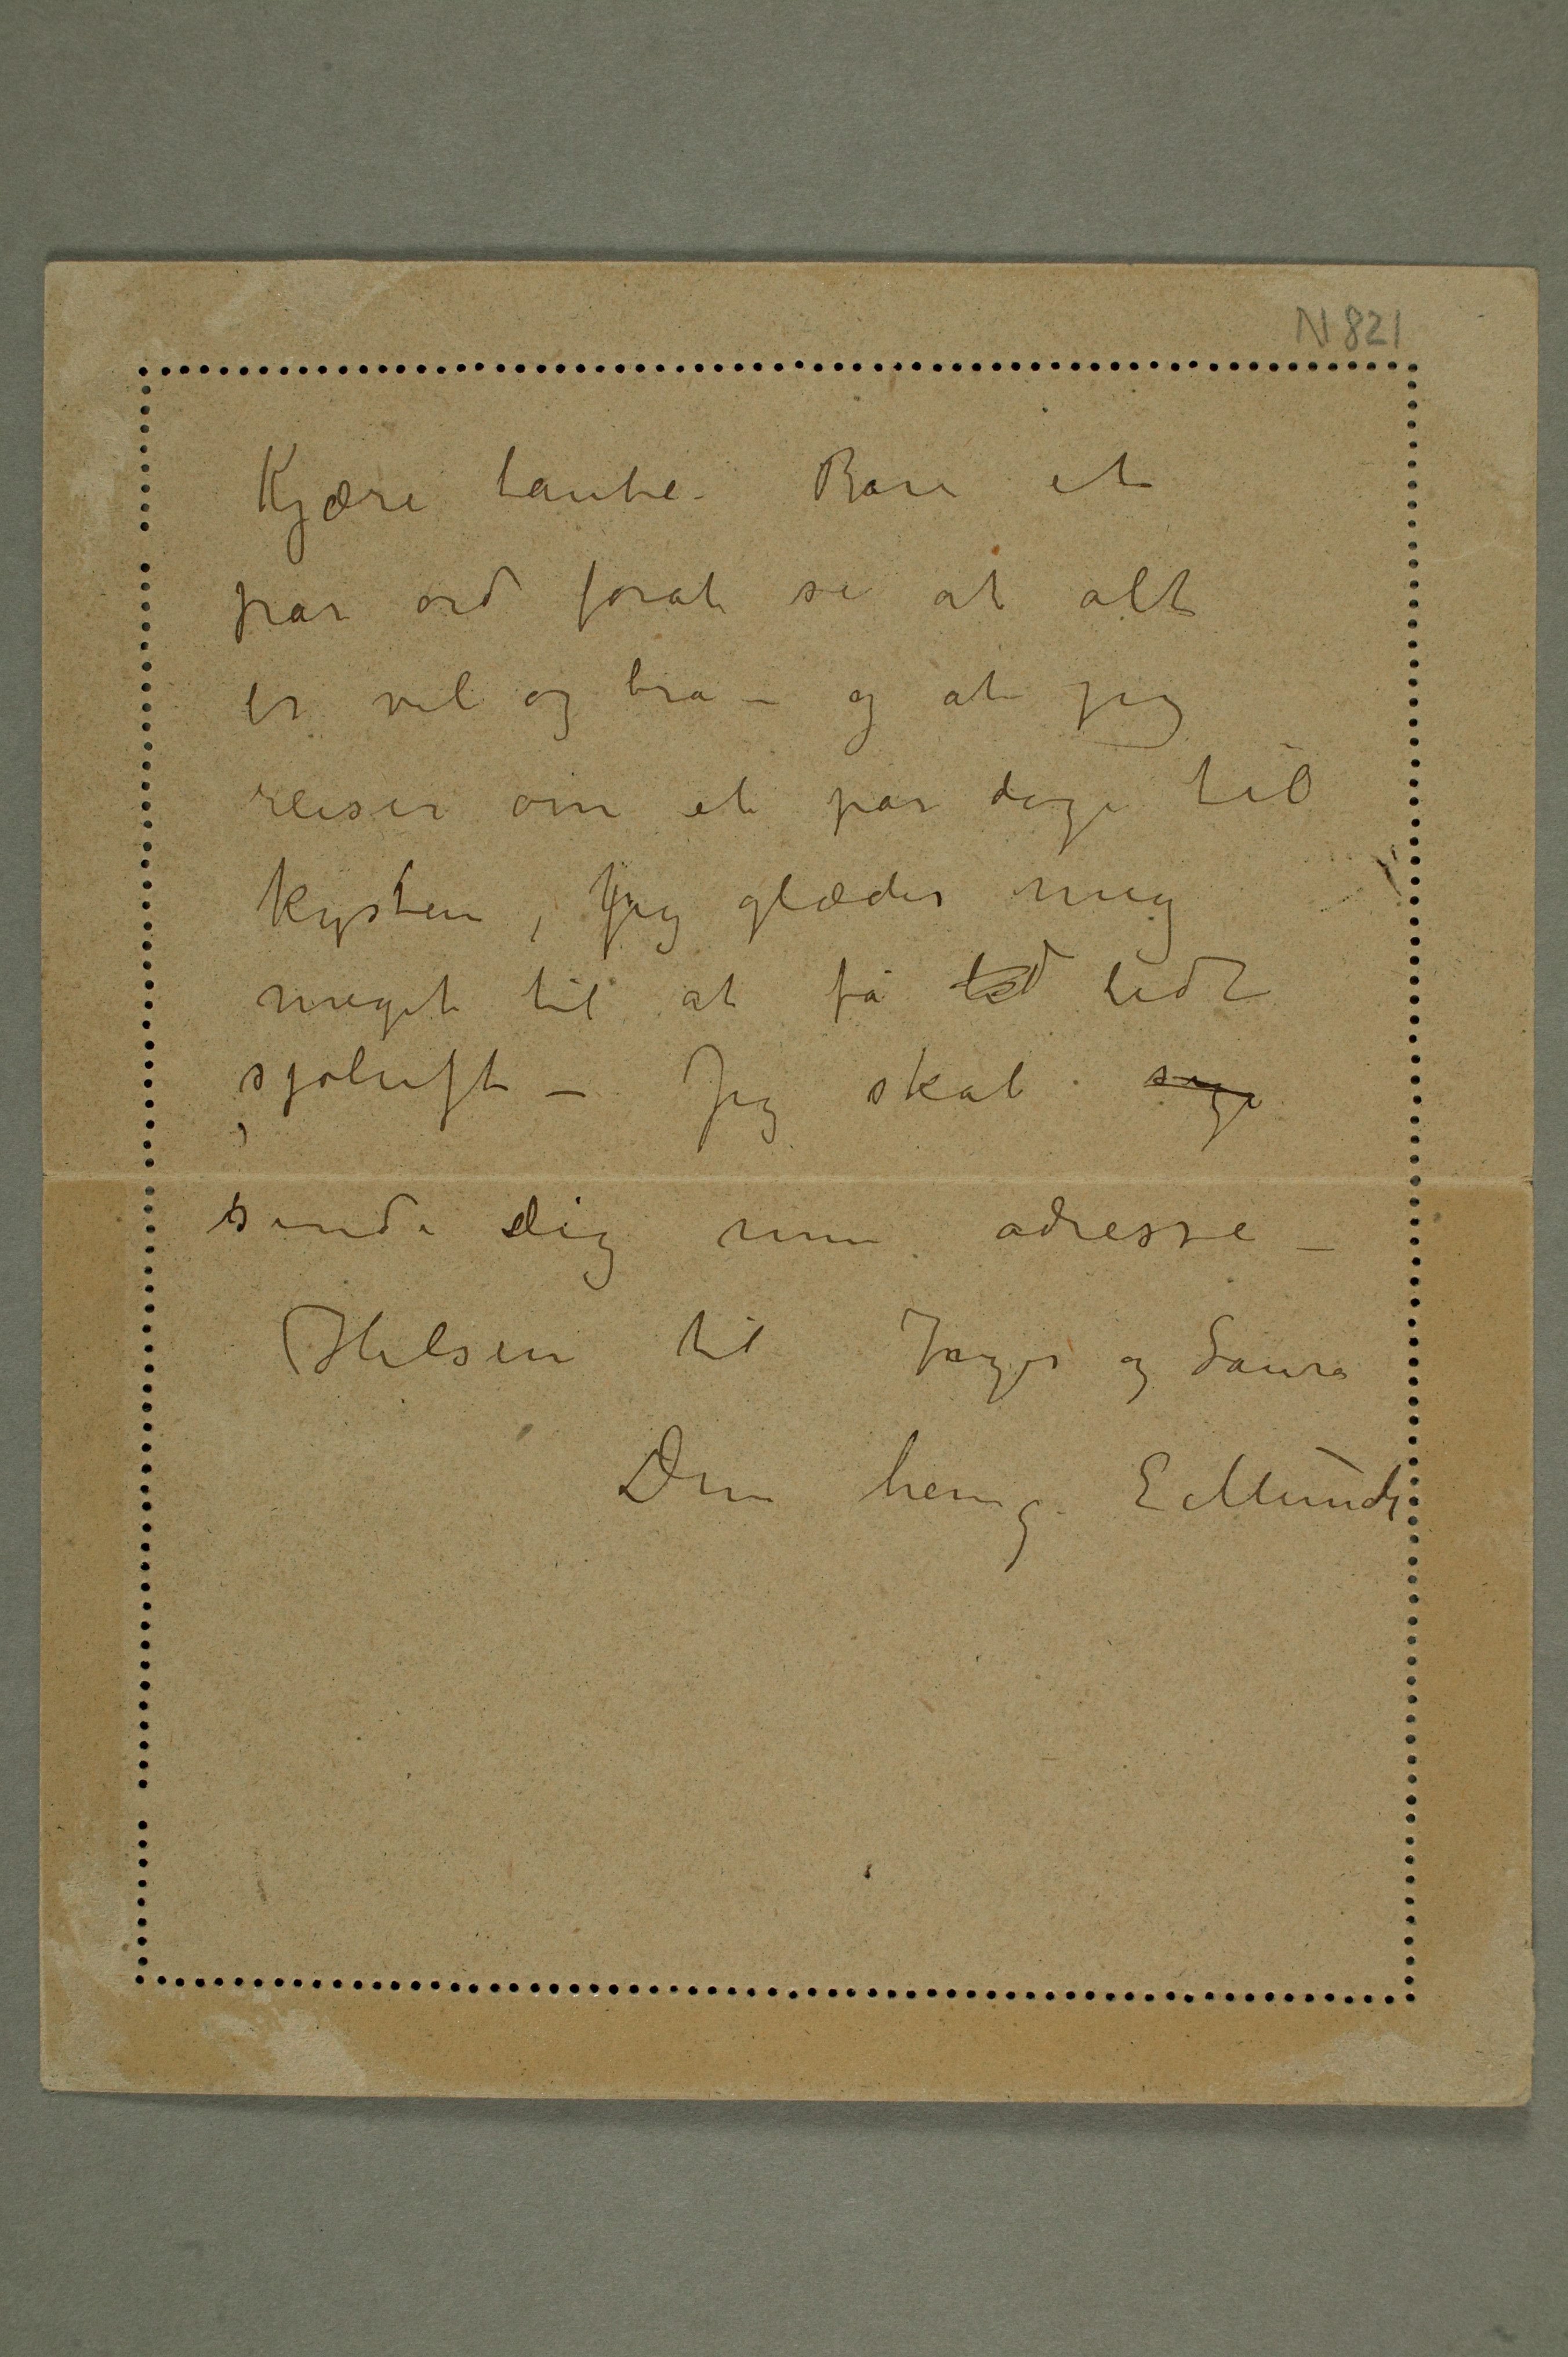 N 821
Kjære tante. Bare et
par ord forat se at alt
er vel og bra – og at jeg
reiser om et par dage til
kysten, jeg glæder mig
meget til at få lidt
sjøluft – Jeg skal sige
sende dig min adresse –
Hilsen til Inger og Laura
Din heng. E Munch